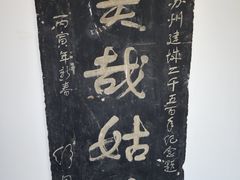 苏州建城二千五百年纪念题
美哉姑
丙寅年新春